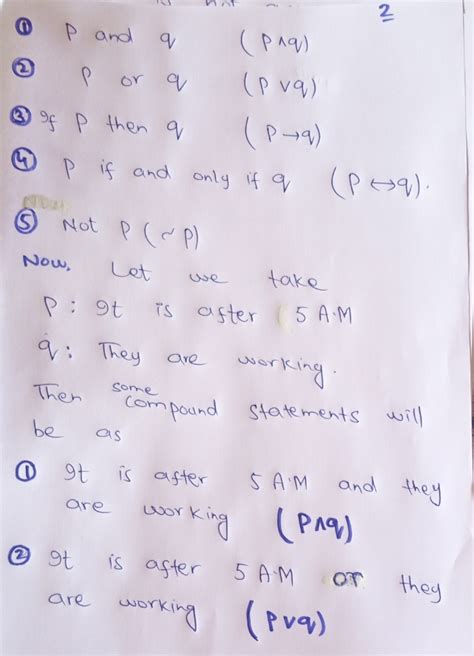 2
① P and q (P∧q)
② P or q (P∨q)
③ If P then q (P→q)
④ P if and only if q (P↔q).
⑤ Not P (~P)
Now, Let we take
P: It is after 5 A.M
q: They are working.
Then some compound statements will
be as
① It is after 5 A.M and they
are working (P∧q)
② It is after 5 A.M or they
are working (P∨q)